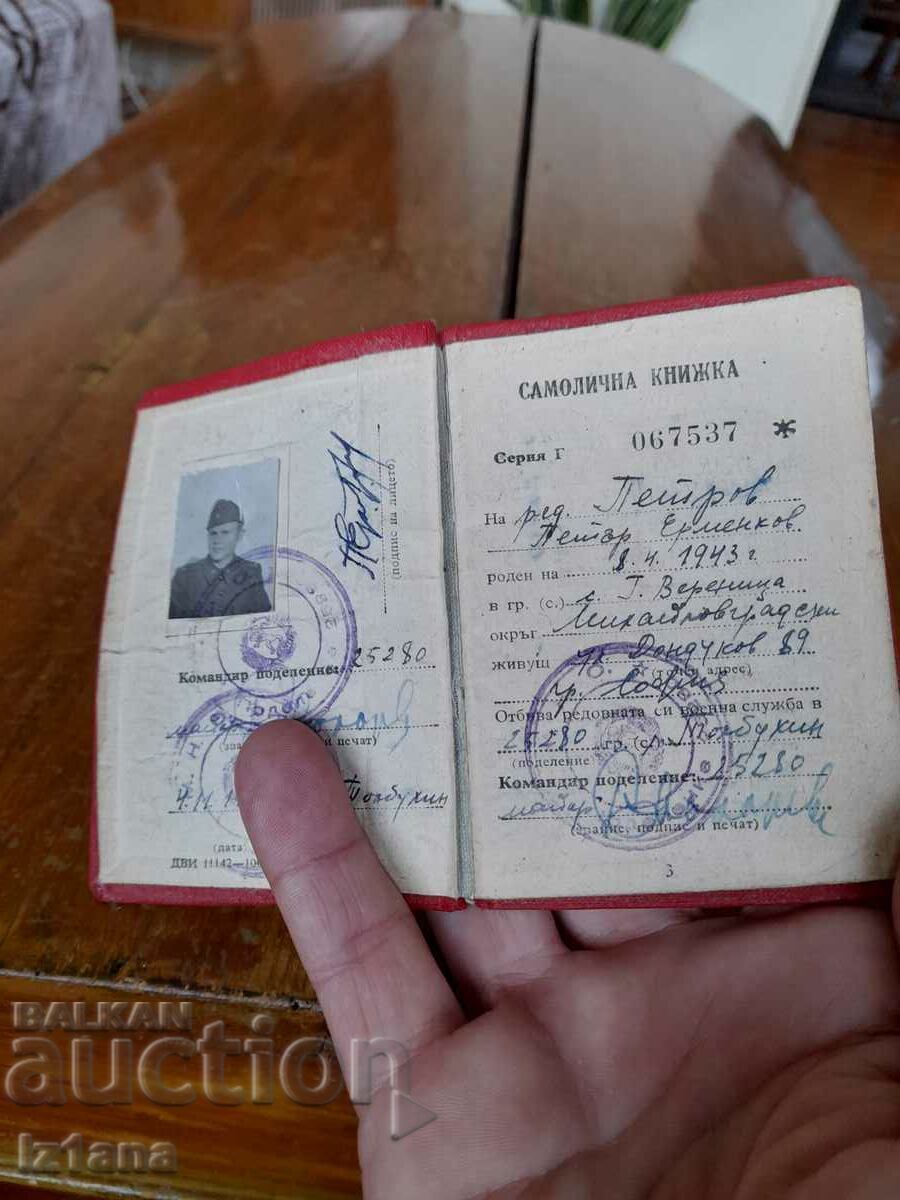 (подпис на лицето)
Командир поделение: 25280
печат)
Толбухин
(дата)
ДВИ 11142—
САМОЛИЧНА КНИЖКА
Серия Г 067537 *
На ред. Петров
Петър Ерменков
роден на 8.4.1943 г.
в гр. (с.) с. Г. Вереница
окръг Михайловградски
живущ ул. Дондуков 89
(точен адрес)
гр. София
Отбива редовната си военна служба в
25280 гр. (с.) Толбухин
(поделение)
Командир поделение: 25280
майор
(звание, подпис и печат)
3
BALKAN
auction
Iz1ana